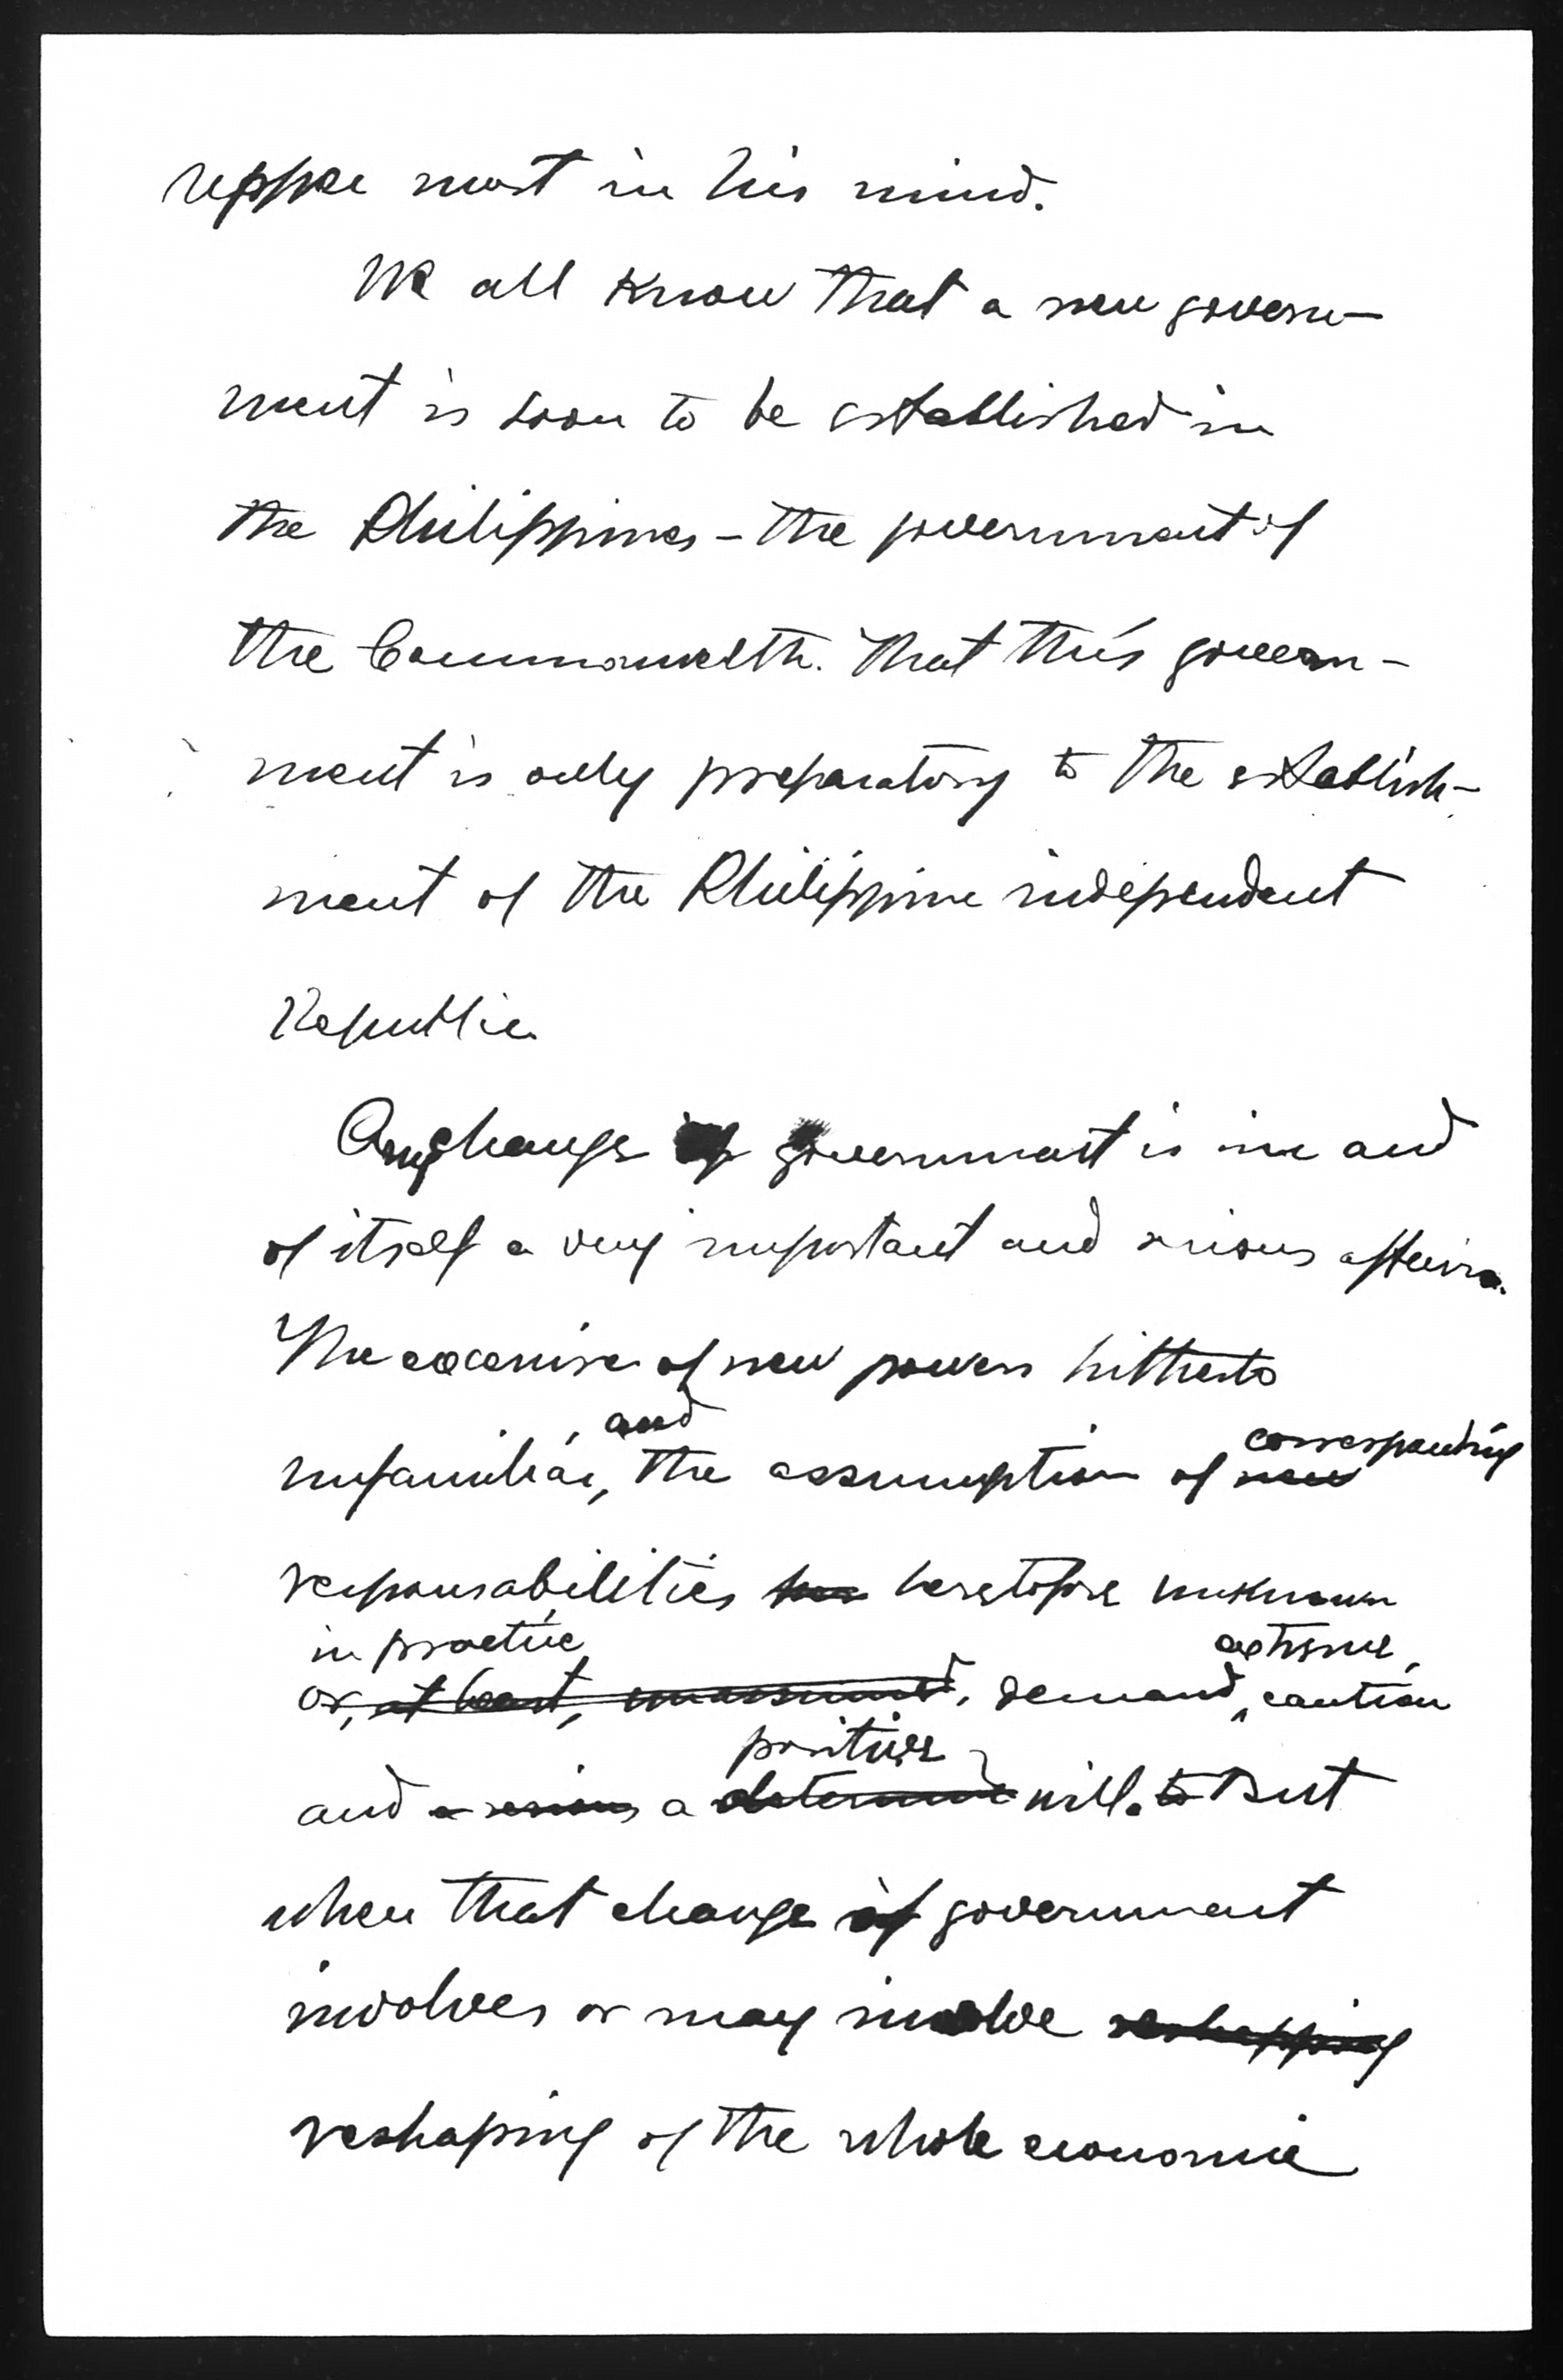 upper most in his mind.
We all know that a new govern-
ment is soon to be established in
the Philippines - the government of
the Commonwelth. That this govern-
ment is only preparatory to the establish-
ment of the Philippine independent
Republic.
Any change of government is in and
of itself a very important and serious affair.
The excercise of new powers hitherto
and
unfamiliar, the assumption of new
corresponding
responsabilities heretofore unknown
in practice
extreme,
or, at least, unassumed, demand, caution
positive
and a serious a determine will. to But
when that change of government
involves or may involve reshapping
reshaping of the whole economic